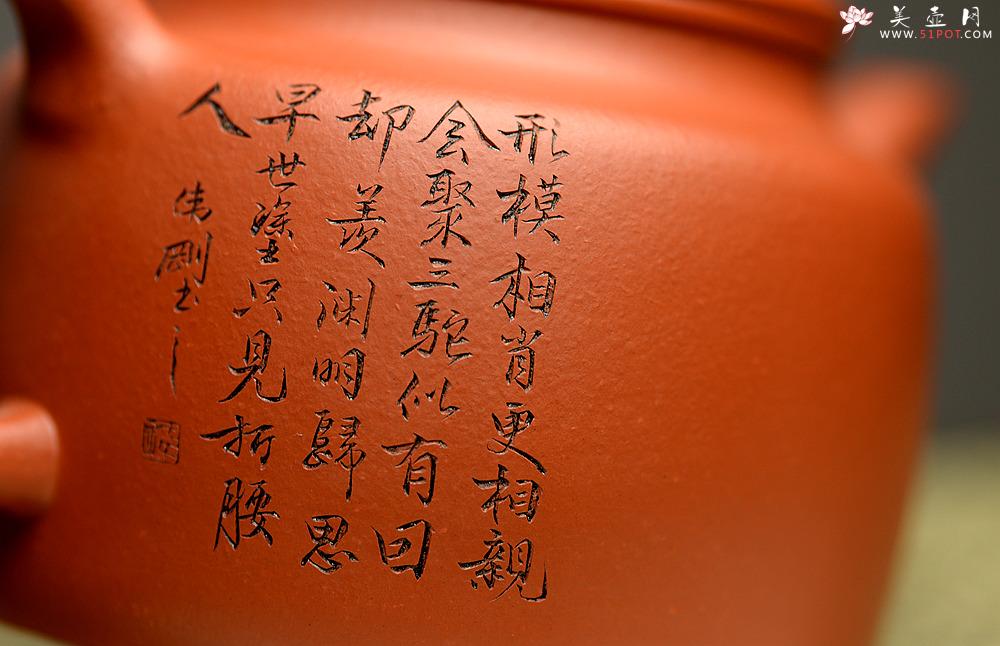 形模相肖更相親
会聚三駝似有囙
却羡渊明歸思
早世塗只見折腰
人
偉剛书之
美壶网
WWW.51POT.COM